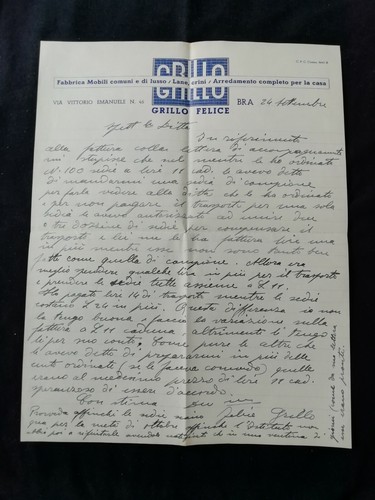 GRILLO
Fabbrica Mobili comuni e di lusso / Lane, crini / Arredamento completo per la casa
GRILLO
VIA VITTORIO EMANUELE N.
GRILLO FELICE
BRA 24 settembre
Spett le Ditta
In riferimento
alla fattura colla lettera di accompagnamento
mi stupisce che nel mentre le ho ordinato
N. 100 sedie a lire 11 cad. le avevo detto
di mandarmi una sedia di campione
per farle vedere alla ditta che le ha ordinate
e per non pagare il trasporto per una sola
sedia le avevo autorizzato ad unire due
o tre dozzine di sedie per compensare il
trasporto e lei me le ha fattura lire una
in più mentre esse non sono tanto ben
fatte come quella di campione. Allora era
meglio spendere qualche lira in più per il trasporto
e prendere le sedie tutte assieme a L 11.
Ho pagato lire 14 di trasporto mentre le sedie
costano L 24 in più. Questa differenza io non
la tengo buona, o faccia la variazione sulla
fattura a L 11 caduna, altrimenti le tengo
lì per suo conto. Come pure le altre che
le avevo detto di prepararmi in più delle
cento ordinate, se le faceva comodo, quelle
erano al medesimo prezzo di lire 11 cad.
speranzoso di essere d'accordo.
Con stima
Felice Grillo
Provveda affinchè le sedie siano
qua per la metà di ottobre affinchè l'Istituto non
abbi poi a rifiutarle